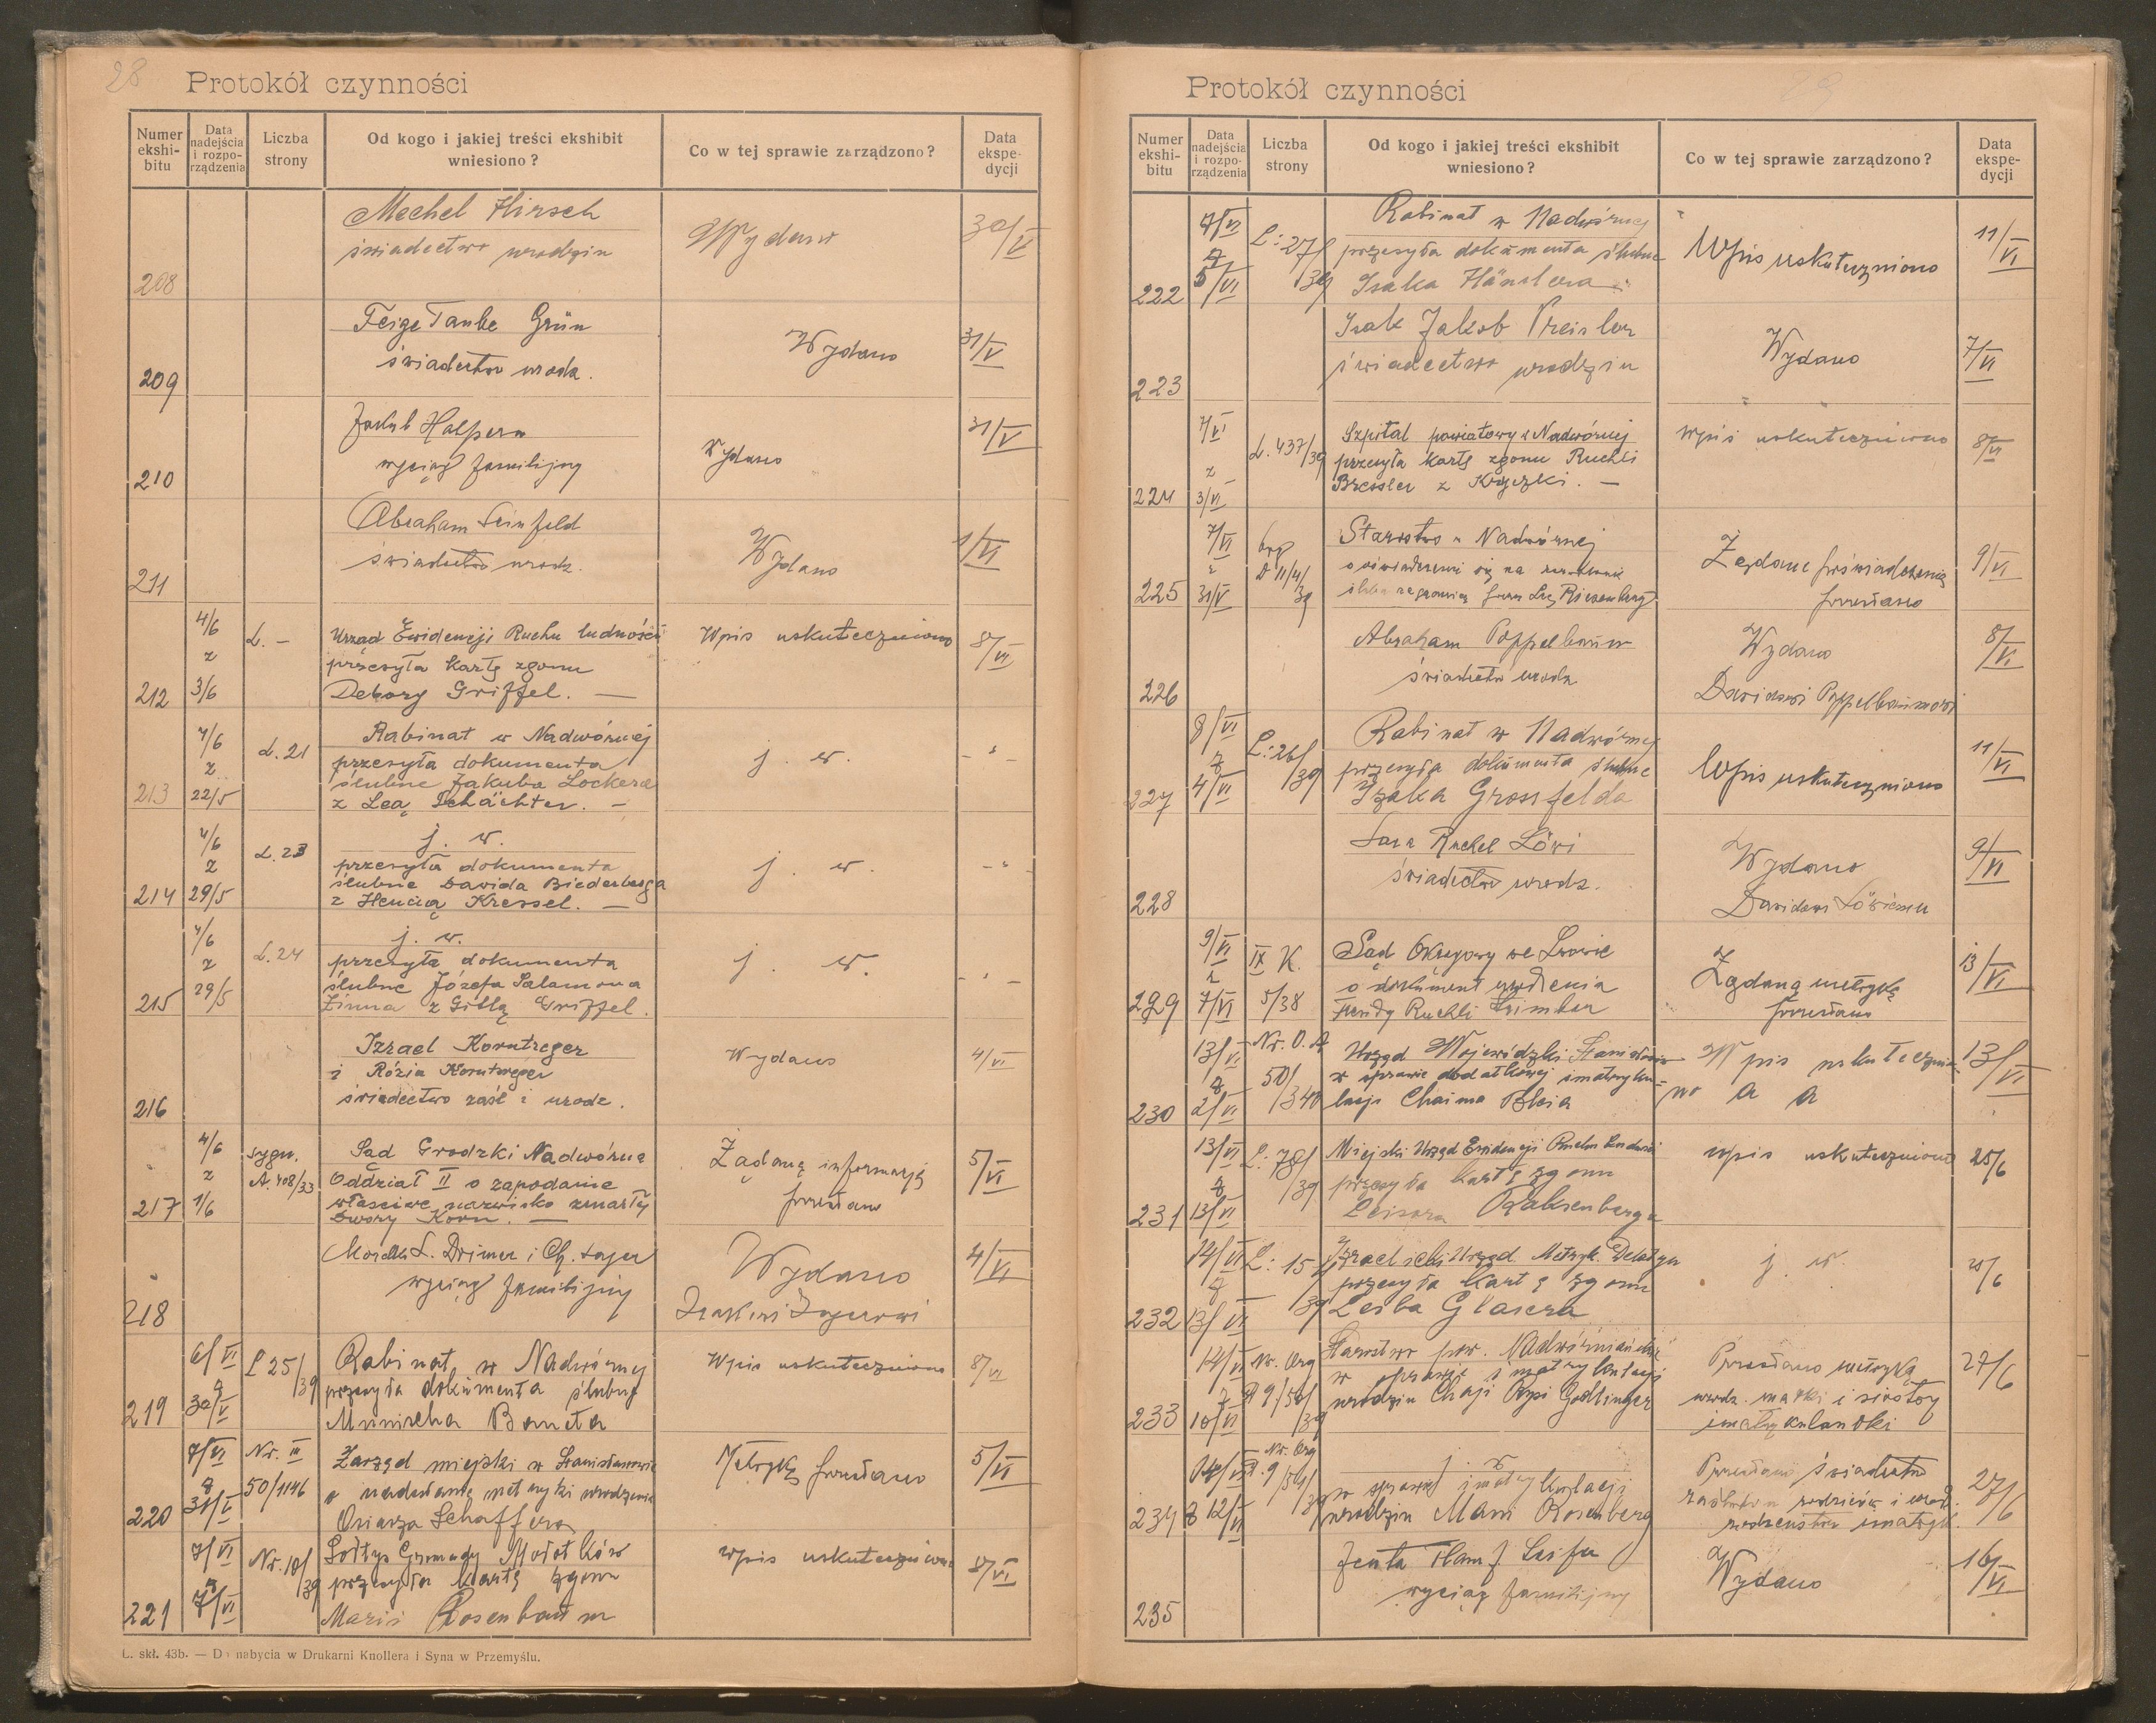 28
Protokół czynności
Numer ekshi-bitu
Data nadejścia i rozpo-rządzenia
Liczba strony
Od kogo i jakiej treści ekshibit wniesiono?
Co w tej sprawie zarządzono?
Data ekspe-dycji
Mechel Hirsch
świadectwo urodzin
Wydano
30/V
208
Feige Taube Grün
świadectwo urodz.
Wydano
31/V
209
Jakub Halpern
wyciąg familijny
Wydano
31/V
210
Abraham Feinfeld
świadectwo urodz.
Wydano
1/VI
211
4/6 z 3/6
L. —
Urząd Ewidencji Ruchu ludności
przesyła kartę zgonu
Debory Griffel. —
Wpis uskuteczniono
8/VI
212
4/6 z 22/5
L. 21
Rabinat w Nadwórnej
przesyła dokumenta
ślubne Jakuba Lockera
z Leą Schächter. —
j. w.
- " -
213
4/6 z 29/5
L. 23
j. w.
przesyła dokumenta
ślubne Dawida Biederberga
z Hencią Kressel. —
j. w.
- " -
214
4/6 z 29/5
L. 24
j. w.
przesyła dokumenta
ślubne Józefa Salamona
Zinna z Gitlą Griffel.
j. w.
- " -
215
Izrael Korntreger
i Rózia Korntreger
świadectwo zaśl i urodz.
Wydano
4/VI
216
4/6 z 1/6
sygn. A. 408/33
Sąd Grodzki Nadwórna
Oddział II o zapodanie
właściwe nazwisko zmarłej
Dwory Korn. —
Żądaną informację
przesłano
5/VI
217
L. Drimer i Ch. Lajer
wyciąg familijny
Wydano
4/VI
218
6/VI z 30/V
L 25/39
Rabinat w Nadwórnej
przesyła dokumenta ślubne
Wpis uskuteczniono
8/VI
219
7/VI z 31/V
Nr. III 50/1146
Zarząd miejski w Stanisławowie
o nadesłanie metryki urodzenia
Oziasza Schaffera
Metrykę przesłano
5/VI
220
7/VI z 7/VI
Nr. 10/39
Sołtys Gromady Mołotków
przesyła kartę zgonu
Marii Rosenbaum
Wpis uskuteczniono
8/VI
221
L. skł. 43b. — Do nabycia w Drukarni Knollera i Syna w Przemyślu.
29
Protokół czynności
Numer ekshi-bitu
Data nadejścia i rozpo-rządzenia
Liczba strony
Od kogo i jakiej treści ekshibit wniesiono?
Co w tej sprawie zarządzono?
Data ekspe-dycji
7/VI z 5/VI
L: 27/39
Rabinat w Nadwórnej
przesyła dokumenta ślubne
Isaka Händlera
Wpis uskuteczniono
11/VI
222
Isak Jakob Preisler
świadectwo urodzin
Wydano
7/VI
223
7/VI z 3/VI
L. 437/39
Szpital powiatowy w Nadwórnej
przesyła kartę zgonu Ruchli
Bressler z Krzyczki. —
Wpis uskuteczniono
8/VI
224
7/VI z 31/V
Starostwo w Nadwórnej
Żądane poświadczenie
przesłano
9/VI
225
Abraham Poppelbaum
świadectwo urodz
Wydano
Dawidowi Poppelbaumowi
8/VI
226
8/VI z 4/VI
L: 26/39
Rabinat w Nadwórnej
przesyła dokumenta ślubne
Izaka Grossfelda
Wpis uskuteczniono
11/VI
227
Sara Ruchel Löwi
świadectwo urodz.
Wydano
9/VI
228
9/VI z 7/VI
IX K. 5/38
Sąd Okręgowy we Lwowie
o dokument urodzenia
Ruchli
Żądaną metrykę
przesłano
13/VI
229
13/VI z 2/VI
Nr. O. A 50/340
Urząd Wojewódzki
w sprawie dodatkowej imatryku-
lacji Chaima
Wpis uskutecznio-
no a a
13/VI
230
13/VI z 13/VI
L: 78/39
Miejski Urząd Ewidencji Ruchu Ludności
przesyła kartę zgonu
Leisora
Wpis uskuteczniono
25/6
231
14/VI z 13/VI
L: 15/39
Izraelicki Urząd Metryk. Delatyn
przesyła kartę zgonu
Leiba Glasera
j. w.
25/6
232
14/VI z 10/VI
Nr. Org 9/50/39
Starostwo pow. Nadwórniańskie
w sprawie imatrykulacji
urodzin Chaji
Przesłano metrykę
urodz. matki i siostry
imatrykulantki
27/6
233
14/VI z 12/VI
Nr. Org 9/51/39
j. w.
w sprawie imatrykulacji
urodzin Mani Rosenberg
Przesłano świadectwo
27/6
234
wyciąg familijny
Wydano
16/VI
235